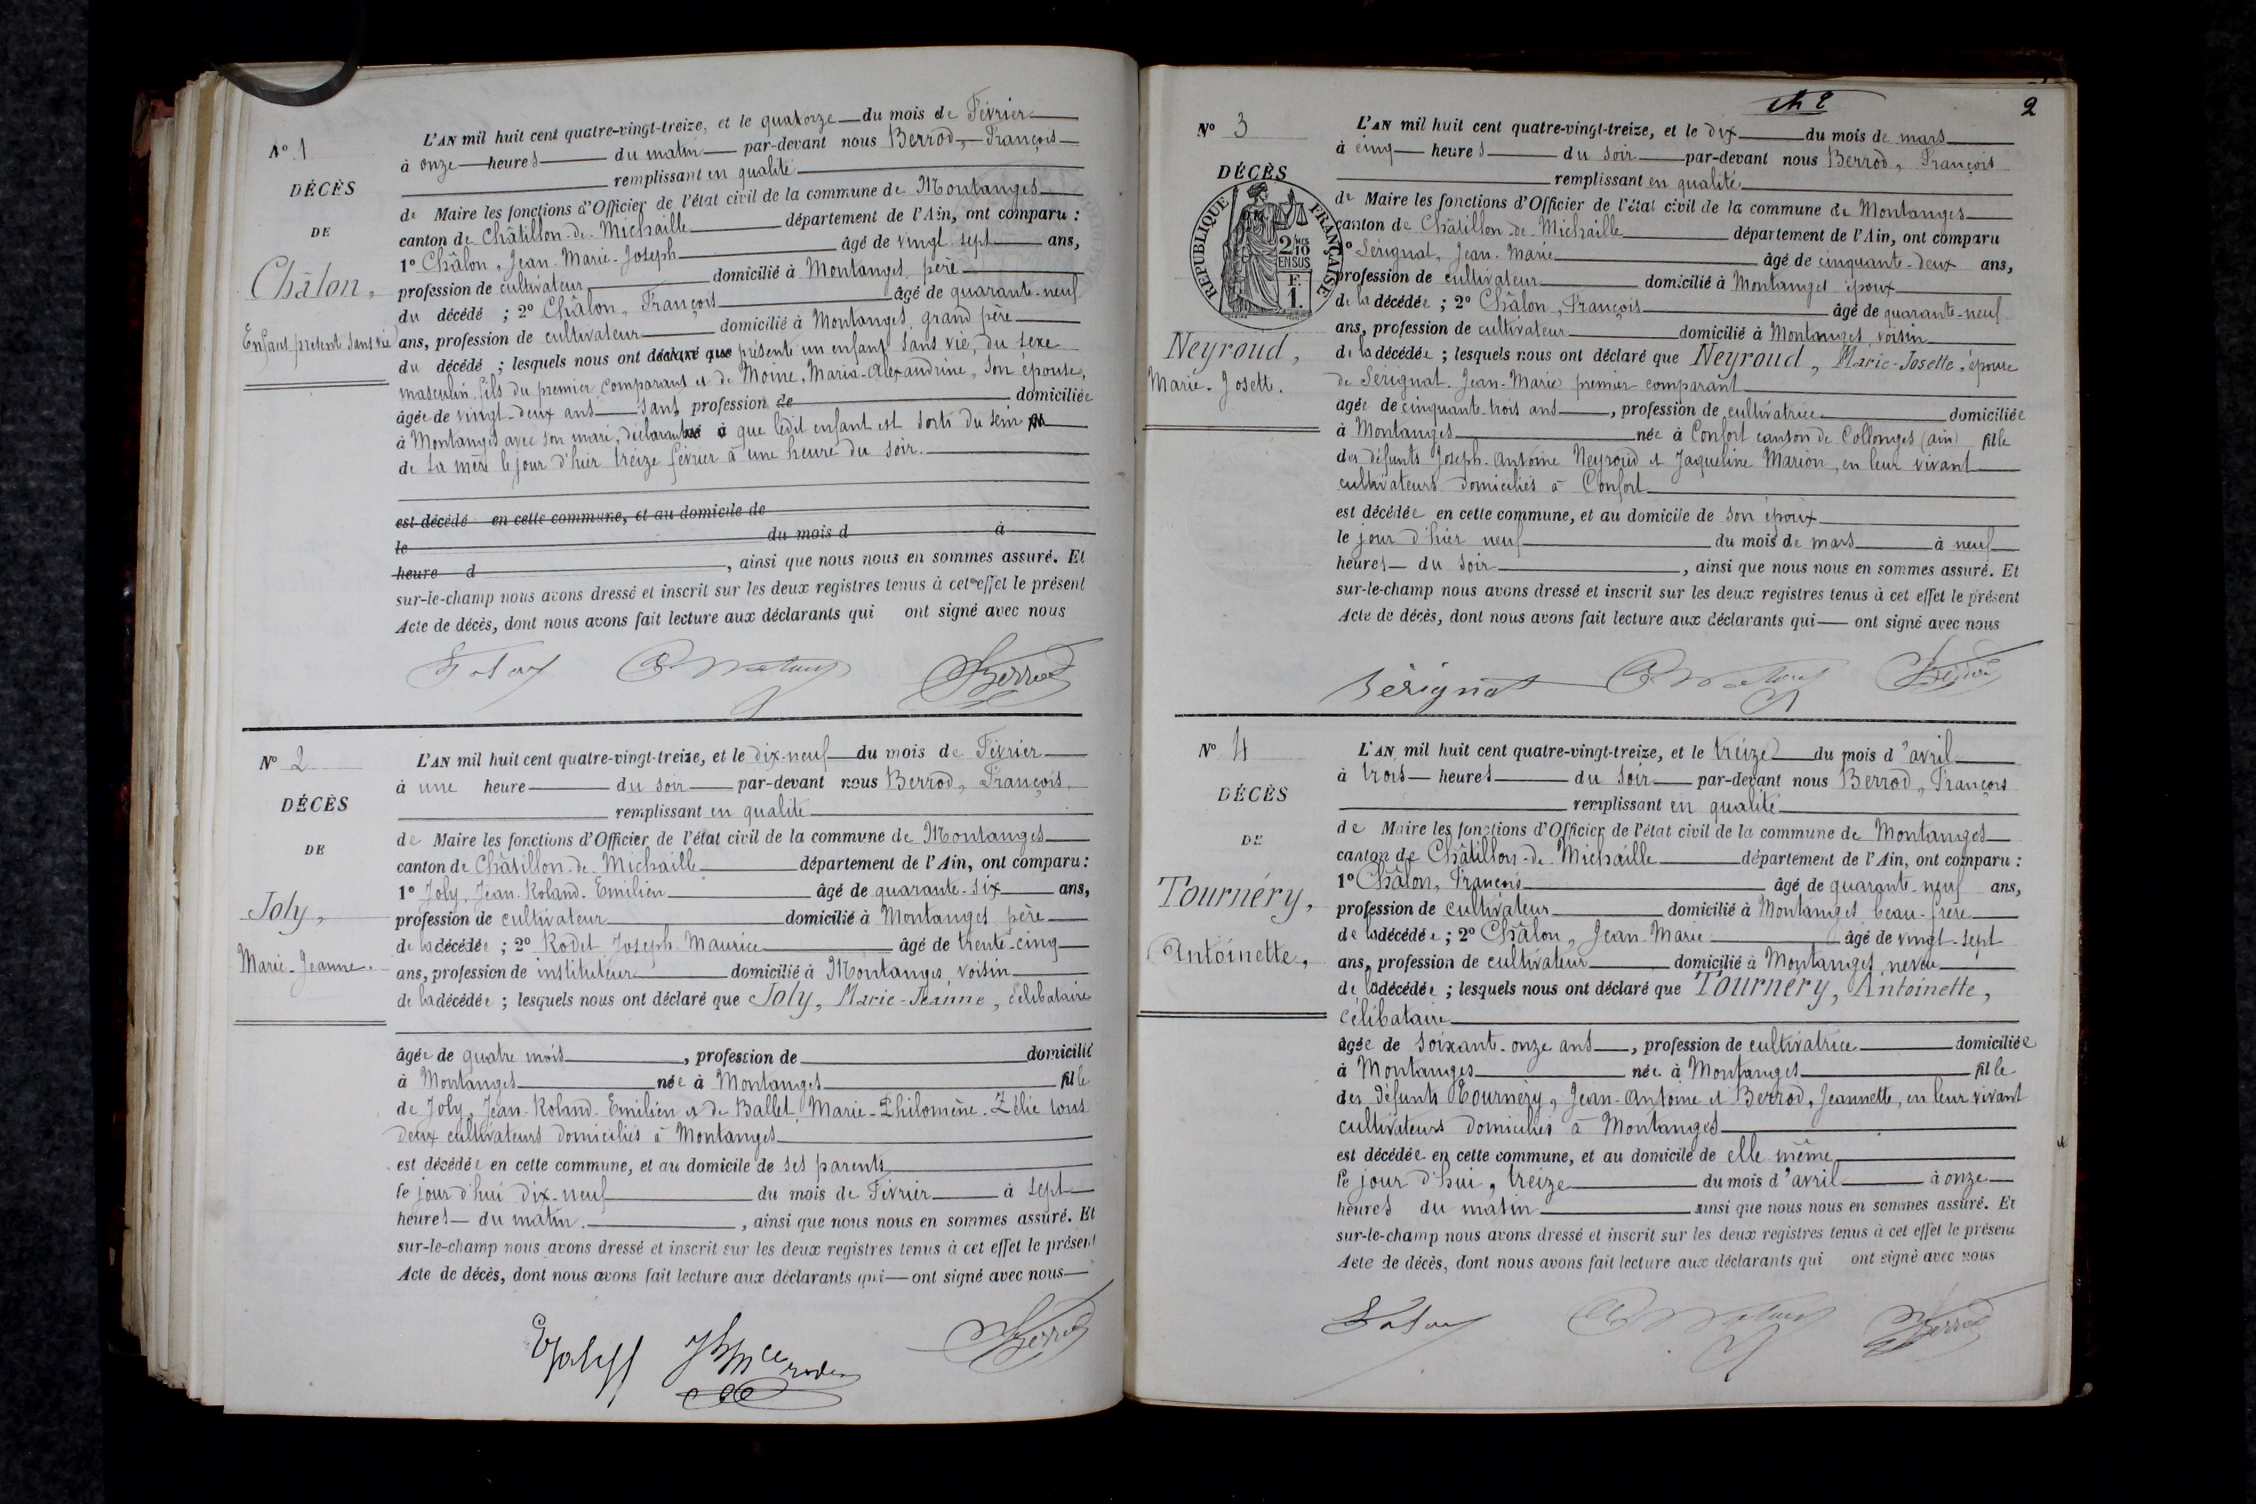 N° 1
DÉCÈS
DE
Châlon,
Enfant présenté sans vie
L'AN mil huit cent quatre-vingt-treize, et le quatorze du mois de Février
à onze heures du matin par-devant nous Berrod, François
remplissant en qualité
de Maire les fonctions d'Officier de l'état civil de la commune de Montanges
canton de Châtillon-de-Michaille département de l'Ain, ont comparu :
1° Châlon, Jean-Marie-Joseph âgé de vingt-sept ans,
profession de cultivateur domicilié à Montanges, père
du décédé ; 2° Châlon, François âgé de quarante-neuf
ans, profession de cultivateur domicilié à Montanges, grand père
du décédé ; lesquels nous ont déclaré que présenté un enfant sans vie, du sexe
masculin, fils du premier comparant et de Moine, Maria-Alexandrine, son épouse,
âgée de vingt-deux ans sans profession de domiciliée
à Montanges avec son mari, déclarant à que ledit enfant est sorti du sein
de sa mère le jour d'hier treize février à une heure du soir.
est décédé en cette commune, et au domicile de
le du mois d à
heure d , ainsi que nous nous en sommes assuré. Et
sur-le-champ nous avons dressé et inscrit sur les deux registres tenus à cet effet le présent
Acte de décès, dont nous avons fait lecture aux déclarants qui ont signé avec nous
Berrod
N° 2
DÉCÈS
DE
Joly,
Marie-Jeanne.
L'AN mil huit cent quatre-vingt-treize, et le dix-neuf du mois de Février
à une heure du soir par-devant nous Berrod, François
remplissant en qualité
de Maire les fonctions d'Officier de l'état civil de la commune de Montanges
canton de Châtillon-de-Michaille département de l'Ain, ont comparu :
1° Joly, Jean-Roland-Emilien âgé de quarante-six ans,
profession de cultivateur domicilié à Montanges père
de la décédée ; 2° Rodet Joseph Maurice âgé de trente-cinq
ans, profession de instituteur domicilié à Montanges, voisin
de la décédée ; lesquels nous ont déclaré que Joly, Marie-Jeanne, Célibataire
âgée de quatre mois, profession de domicilié
à Montanges née à Montanges fille
de Joly, Jean-Roland-Emilien et de Ballet, Marie-Philomène-Zélie tous
deux cultivateurs domiciliés à Montanges
est décédée en cette commune, et au domicile de ses parents
le jour d'hui dix-neuf du mois de Février à sept
heures du matin. , ainsi que nous nous en sommes assuré. Et
sur-le-champ nous avons dressé et inscrit sur les deux registres tenus à cet effet le présent
Acte de décès, dont nous avons fait lecture aux déclarants qui ont signé avec nous
Berrod
2
N° 3
DÉCÈS
REPUBLIQUE FRANÇAISE
2/10
EN SUS
Neyroud,
Marie-Josette.
L'AN mil huit cent quatre-vingt-treize, et le dix du mois de mars
à cinq heures du soir par-devant nous Berrod, François
remplissant en qualité
de Maire les fonctions d'Officier de l'état civil de la commune de Montanges
canton de Châtillon-de-Michaille département de l'Ain, ont comparu
1° Sérignat, Jean-Marie âgé de cinquante-deux ans,
profession de cultivateur domicilié à Montanges époux
de la décédée ; 2° Châlon, François âgé de quarante-neuf
ans, profession de cultivateur domicilié à Montanges, voisin
de la décédée ; lesquels nous ont déclaré que Neyroud, Marie-Josette, épouse
de Sérignat Jean-Marie premier comparant
agée de cinquante-trois ans, profession de cultivatrice domiciliée
à Montanges née à Confort canton de Collonges (ain) fille
des défunts Joseph-Antoine Neyroud et Jaqueline Marion, en leur vivant
cultivateurs domiciliés à Confort
est décédée en cette commune, et au domicile de son époux
le jour d'hier neuf du mois de mars à neuf
heures du soir , ainsi que nous nous en sommes assuré. Et
sur-le-champ nous avons dressé et inscrit sur les deux registres tenus à cet effet le présent
Acte de décès, dont nous avons fait lecture aux déclarants qui ont signé avec nous
Sérignat Berrod
N° 4
DÉCÈS
DE
Tournéry,
Antoinette,
L'AN mil huit cent quatre-vingt-treize, et le treize du mois d'avril
à trois heures du soir par-devant nous Berrod, François
remplissant en qualité
de Maire les fonctions d'Officier de l'état civil de la commune de Montanges
canton de Châtillon-de-Michaille département de l'Ain, ont comparu :
1° Châlon, François âgé de quarante-neuf ans,
profession de cultivateur domicilié à Montanges, beau-frère
de la décédée ; 2° Châlon, Jean-Marie âgé de vingt-sept
ans, profession de cultivateur domicilié à Montanges, neveu
de la décédée ; lesquels nous ont déclaré que Tournéry, Antoinette,
célibataire
âgée de soixant-onze ans, profession de cultivatrice domiciliée
à Montanges née à Montanges fille
des défunts Tournéry, Jean-Antoine et Berrod, Jeannette, en leur vivant
cultivateurs domiciliés à Montanges
est décédée en cette commune, et au domicile de elle même
le jour d'hui, treize du mois d'avril à onze
heures du matin ainsi que nous nous en sommes assuré. Et
sur-le-champ nous avons dressé et inscrit sur les deux registres tenus à cet effet le présent
Acte de décès, dont nous avons fait lecture aux déclarants qui ont signé avec nous
Berrod